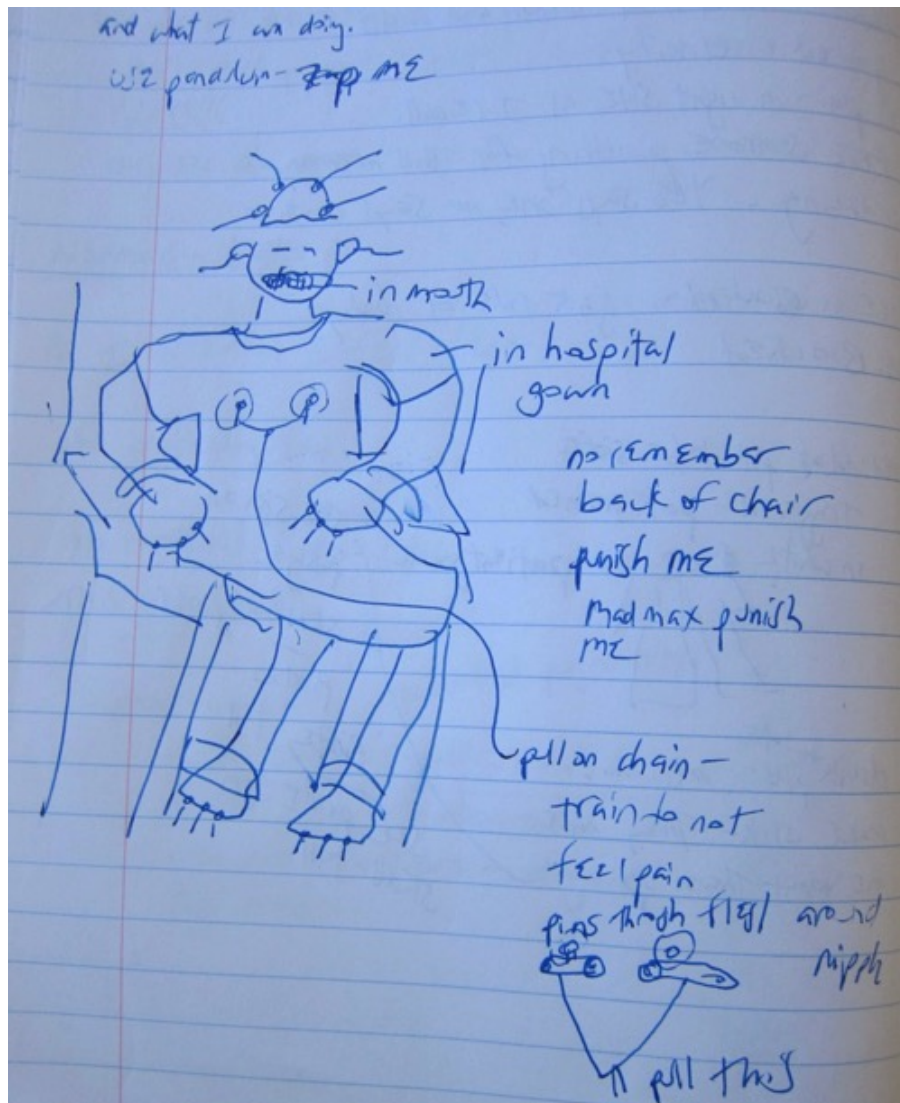 and what I am doing.
use pendulum - zapp ME
in mouth
in hospital
gown
no remember
back of chair
punish ME
Mad max punish
ME
pull on chain -
train to not
feel pain
pins through flesh around
nipple
pull this